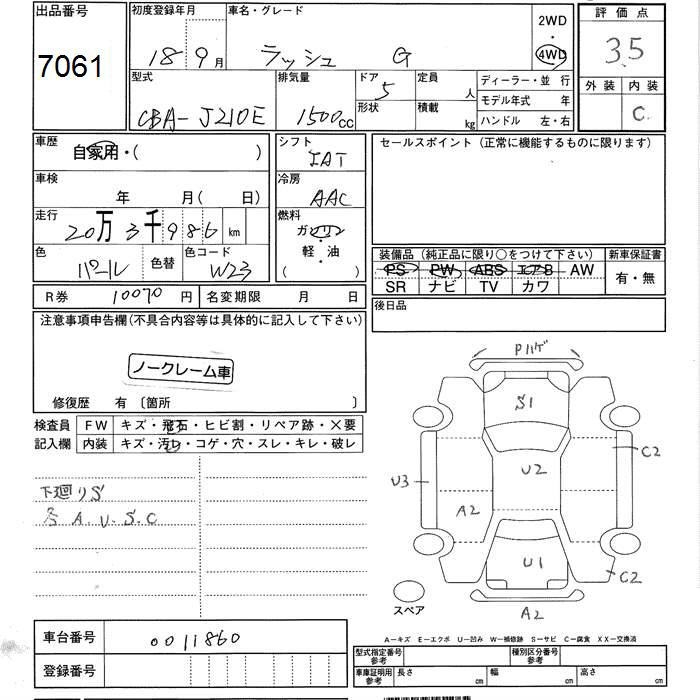 出品番号
7061
初度登録年月
18 9月
車名・グレード
ラッシュ G
2WD
・
4WD
評価点
3.5
外装 内装
C
型式
CBA-J210E
排気量
1500cc
ドア
5
形状
定員
人
積載
kg
ディーラー・並 行
モデル年式 年
ハンドル 左・右
車歴
自家用・( )
シフト
IAT
セールスポイント (正常に機能するものに限ります)
車検
年 月( 日)
冷房
AAC
走行
20万3千986km
燃料
ガソリン
軽・油
( )
色
色替
色コード
W23
装備品 (純正品に限り○をつけて下さい)
新車保証書
PS PW ABS エアB AW
SR ナビ TV カワ
有・無
R券 10070円
名変期限 月 日
後日品
注意事項申告欄(不具合内容等は具体的に記入して下さい)
ノークレーム車
修復歴 有 〔箇所 〕
検査員
記入欄
FW キズ・飛石・ヒビ割・リペア跡・×要
内装 キズ・汚レ・コゲ・穴・スレ・キレ・破レ
下廻りS
各 A.U.S.C
Pハゲ
S1
C2
U2
U3
A2
U1
C2
スペア
A2
A-キズ E-エクボ U-凹み W-補修跡 S-サビ C-腐食 XX-交換済
車台番号
0011860
登録番号
型式指定番号
参考
種別区分番号
参考
車庫証明用
参考
長さ cm
幅 cm
高さ cm